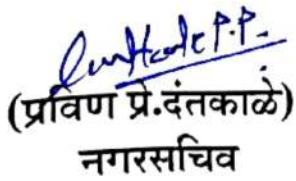 P.P.
(प्रविण प्रे.दंतकाळे)
नगरसचिव